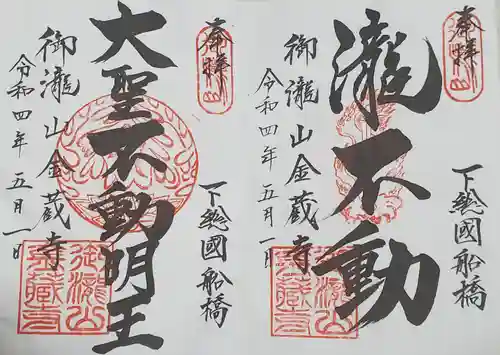 奉拝
下総國船橋
瀧不動
御瀧山金蔵寺
令和四年五月一日
御瀧山
金蔵寺
奉拝
下総國船橋
大聖不動明王
御瀧山金蔵寺
令和四年五月一日
御瀧山
金蔵寺